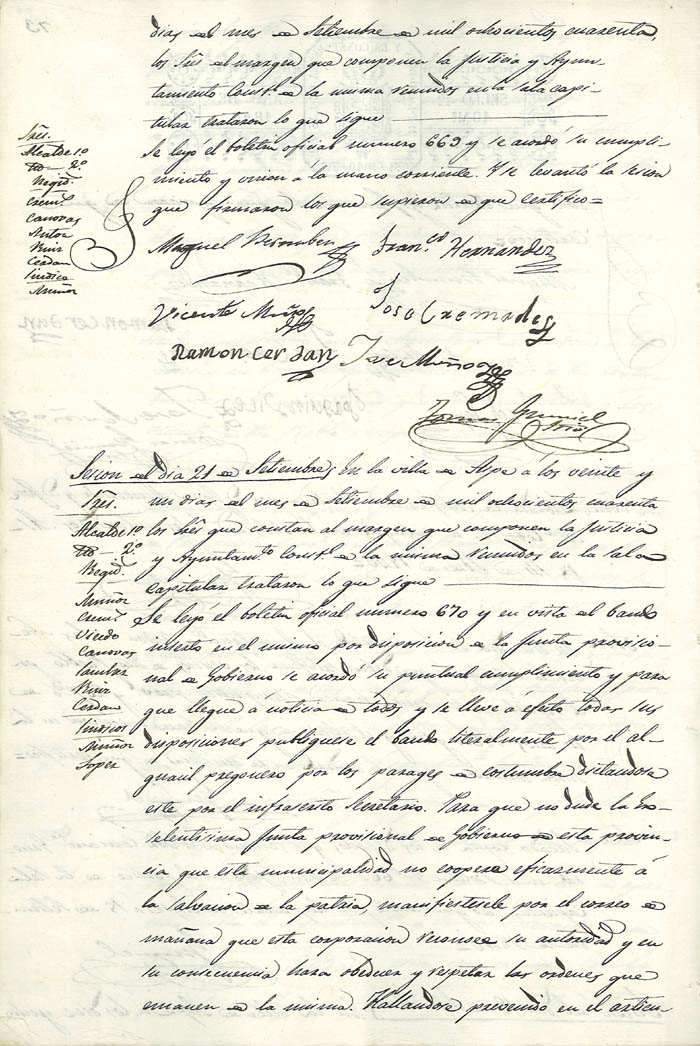 dias del mes de Setiembre de mil ochocientos cuarenta,
los Sres del margen que componen la Justicia y Ayun-
tamiento Const.l de la misma reunidos en la sala capi-
tular trataron lo que sigue
Sres.
Alcalde 1º
Ydo — 2º
Regid.s
Crem.s
Canovas
Anton
Ruiz
Cerdan
Sindico
Muñoz
Se leyó el boletin oficial numero 669 y se acordó su cumpli-
miento y union á la mano corriente. Y se levantó la sesion
que firmaron los que supieron de que certifico=
Miguel
Fran.co Hernandez
Vicente Muñoz
Jose Cremades
Ramon Cerdan
Jose Muñoz
Sesion del dia 21 de Setiembre
En la villa de Aspe á los veinte y
un dias del mes de Setiembre de mil ochocientos cuarenta
los Sres que constan al margen que componen la Justicia
y Ayuntam.to Const.l de la misma reunidos en la sala
capitular trataron lo que sigue
Sres.
Alcalde 1º
Ydo — 2º
Regid.s
Muñoz
Crem.s
Vicedo
Canovas
Ruiz
Cerdan
Sindicos
Muñoz
Soper
Se leyó el boletin oficial numero 670 y en vista del bando
inserto en el mismo por disposicion de la Junta provisio-
nal de Gobierno se acordó su puntual cumplimiento y para
que llegue á noticia de todos y se lleve á efeto todas sus
disposiciones publiquese el bando literalmente por el al-
guacil pregonero por los parages de costumbre dictandose
este por el infraserito Secretario. Para que no dude la Ex-
selentisima Junta provisional de Gobierno de esta provin-
cia que esta municipalidad no coopere eficazmente á
la salvacion de la patria manifiestesele por el correo de
mañana que esta corporacion reconoce su autoridad y en
su consecuencia hara obedecer y respetar las ordenes que
emanen de la misma. Hallandose prevenido en el articu-